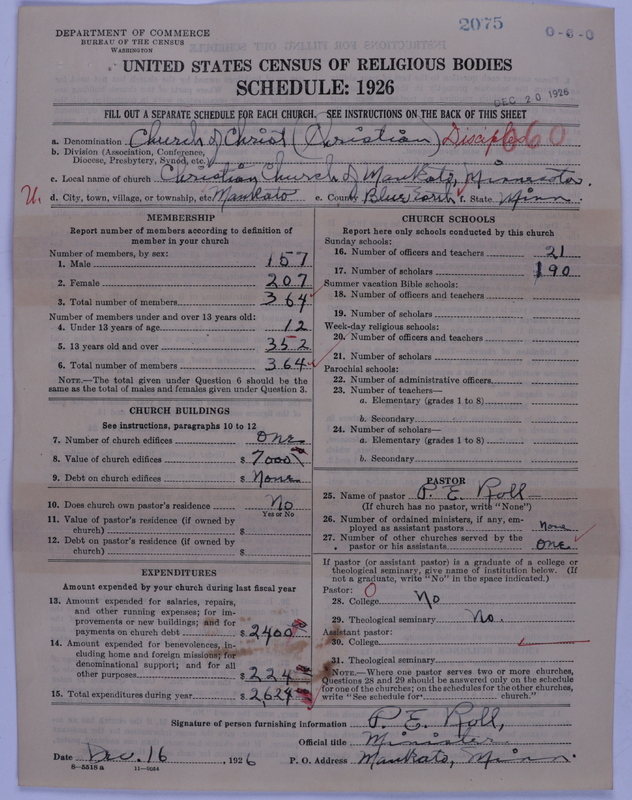 2075
0-6-0
DEPARTMENT OF COMMERCE
BUREAU OF THE CENSUS
WASHINGTON
UNITED STATES CENSUS OF RELIGIOUS BODIES
SCHEDULE: 1926
DEC 20 1926
FILL OUT A SEPARATE SCHEDULE FOR EACH CHURCH. SEE INSTRUCTIONS ON THE BACK OF THIS SHEET
a. Denomination Church of Christ (Christian) Disciples 660
b. Division (Association, Conference, Diocese, Presbytery, Synod, etc.)
c. Local name of church Christian Church of Mankato, Minnesota.
U. d. City, town, village, or township, etc. Mankato e. County Blue Earth f. State Minn.
MEMBERSHIP
Report number of members according to definition of
member in your church
Number of members, by sex:
1. Male 157
2. Female 207
3. Total number of members 364
Number of members under and over 13 years old:
4. Under 13 years of age 12
5. 13 years old and over 352
6. Total number of members 364
NOTE.—The total given under Question 6 should be the
same as the total of males and females given under Question 3.
CHURCH BUILDINGS
See instructions, paragraphs 10 to 12
7. Number of church edifices One
8. Value of church edifices $ 7000
9. Debt on church edifices $ None
10. Does church own pastor's residence No
Yes or No
11. Value of pastor's residence (if owned by
church) $
12. Debt on pastor's residence (if owned by
church) $
EXPENDITURES
Amount expended by your church during last fiscal year
13. Amount expended for salaries, repairs,
and other running expenses; for im-
provements or new buildings; and for
payments on church debt $ 2400
14. Amount expended for benevolences, in-
cluding home and foreign missions; for
denominational support; and for all
other purposes $ 224
15. Total expenditures during year $ 2624
CHURCH SCHOOLS
Report here only schools conducted by this church
Sunday schools:
16. Number of officers and teachers 21
17. Number of scholars 190
Summer vacation Bible schools:
18. Number of officers and teachers
19. Number of scholars
Week-day religious schools:
20. Number of officers and teachers
21. Number of scholars
Parochial schools:
22. Number of administrative officers
23. Number of teachers—
a. Elementary (grades 1 to 8)
b. Secondary
24. Number of scholars—
a. Elementary (grades 1 to 8)
b. Secondary
PASTOR
25. Name of pastor P. E. Roll
(If church has no pastor, write "None")
26. Number of ordained ministers, if any, em-
ployed as assistant pastors None
27. Number of other churches served by the
pastor or his assistants One
If pastor (or assistant pastor) is a graduate of a college or
theological seminary, give name of institution below. (If
not a graduate, write "No" in the space indicated.)
Pastor: O
28. College No
29. Theological seminary No.
Assistant pastor:
30. College
31. Theological seminary
NOTE.—Where one pastor serves two or more churches,
Questions 28 and 29 should be answered only on the schedule
for one of the churches; on the schedules for the other churches,
write "See schedule for church."
Signature of person furnishing information P. E. Roll,
Official title Minister
Date Dec. 16, 1926 P. O. Address Mankato, Minn.
8—5518 a 11—9054